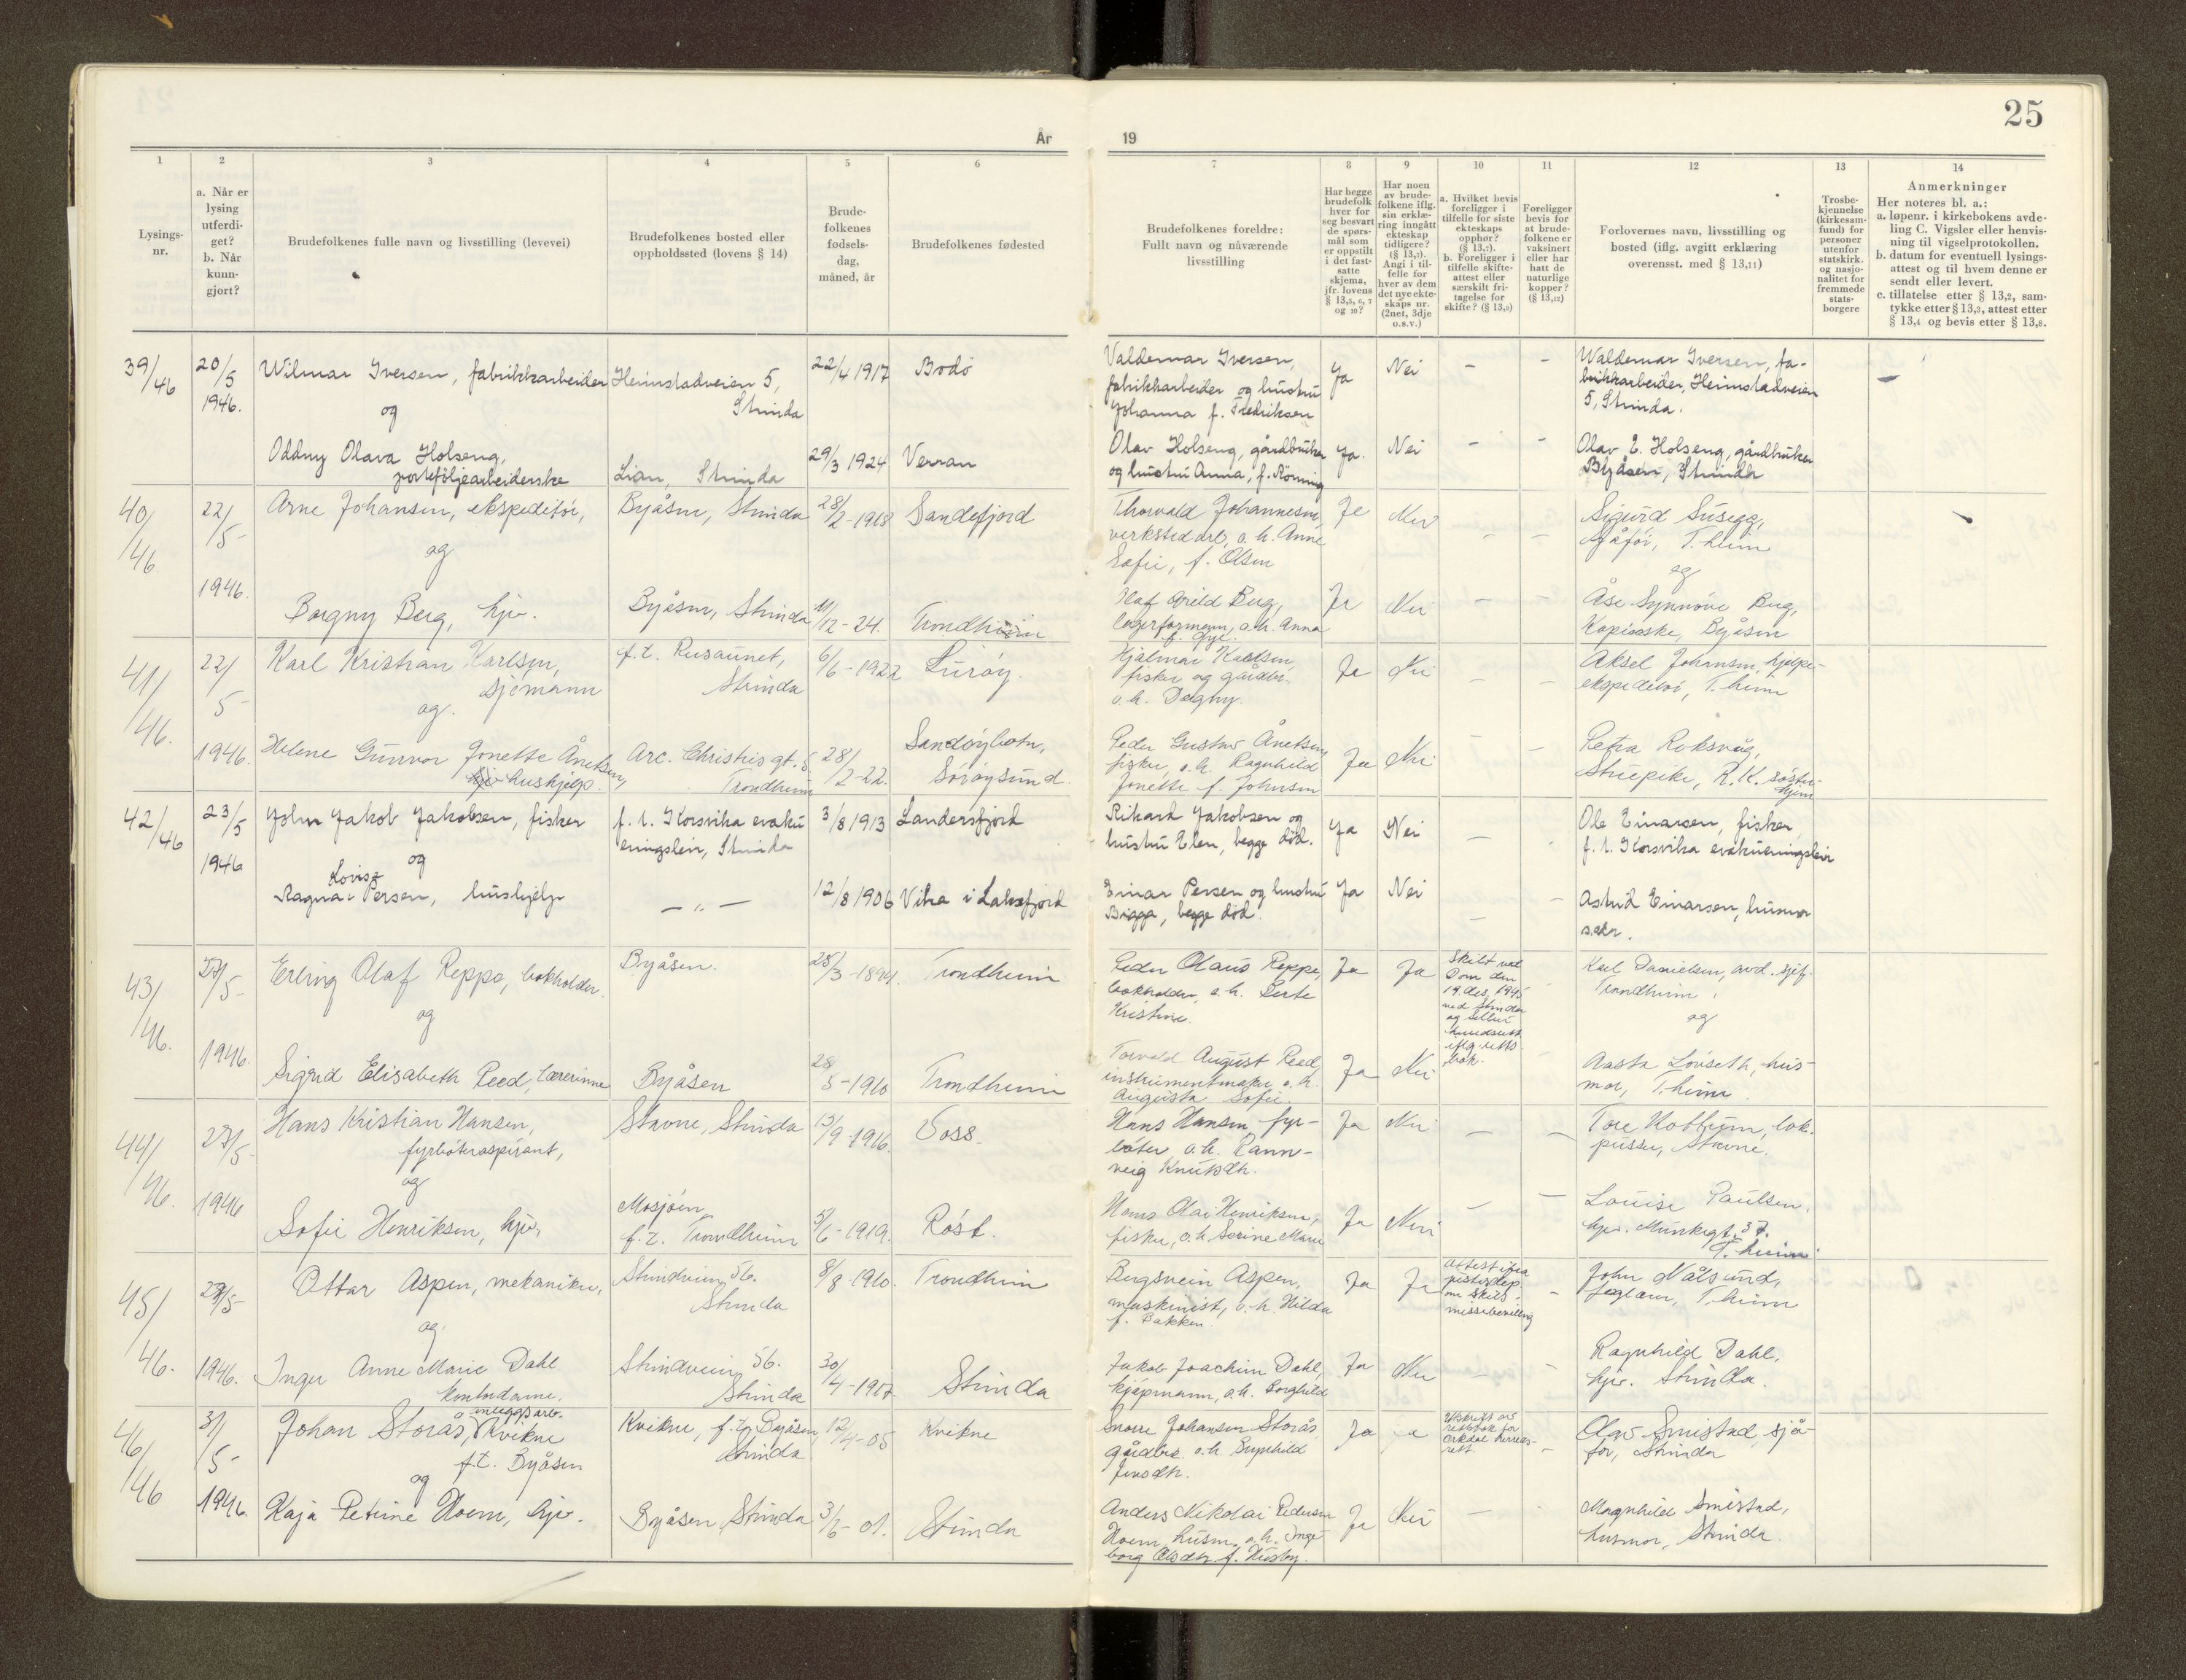 25
År
19
1
2
3
4
5
6
7
8
9
10
11
12
13
14
Lysings-
nr.
a. Når er
lysing
utferdi-
get?
b. Når
kunn-
gjort?
Brudefolkenes fulle navn og livsstilling (levevei)
Brudefolkenes bosted eller
oppholdssted (lovens § 14)
Brude-
folkenes
fødsels-
dag,
måned, år
Brudefolkenes fødested
Brudefolkenes foreldre:
Fullt navn og nåværende
livsstilling
Har begge
brudefolk
hver for
seg besvart
de spørs-
mål som
er oppstilt
i det fast-
satte
skjema,
jfr. lovens
§ 13,5, 6, 7
og 10?
Har noen
av brude-
folkene iflg.
sin erklæ-
ring inngått
ekteskap
tidligere?
(§ 13,7).
Angi i til-
felle for
hver av dem
det nye ekte-
skaps nr.
(2net, 3dje
o.s.v.)
a. Hvilket bevis
foreligger i
tilfelle for siste
ekteskaps
opphør?
(§ 13,7).
b. Foreligger i
tilfelle skifte-
attest eller
særskilt fri-
tagelse for
skifte? (§ 13,9)
Foreligger
bevis for
at brude-
folkene er
vaksinert
eller har
hatt de
naturlige
kopper?
(§ 13,12)
Forlovernes navn, livsstilling og
bosted (iflg. avgitt erklæring
overensst. med § 13,11)
Trosbe-
kjennelse
(kirkesam-
fund) for
personer
utenfor
statskirk.
og nasjo-
nalitet for
fremmede
stats-
borgere
Anmerkninger
Her noteres bl. a.:
a. løpenr. i kirkebokens avde-
ling C. Vigsler eller henvis-
ning til vigselprotokollen.
b. datum for eventuell lysings-
attest og til hvem denne er
sendt eller levert.
c. tillatelse etter § 13,2, sam-
tykke etter § 13,3, attest etter
§ 13,4 og bevis etter § 13,8.
39/46
20/5
1946.
Wilmar Iversen, fabrikkarbeider
og
Heimstadveien 5,
Strinda
22/4 1917
Bodø
Valdemar Iversen,
fabrikkarbeider og hustru
Johanna f. Fredriksen
Ja
Nei
–
–
Waldemar Iversen, fa-
brikkarbeider, Heimstadveien
5, Strinda.
Oddny Olava Holseng,
porteføljearbeiderske
Lian, Strinda
29/3 1924
Verran
Olav Holseng, gårdbruker
og hustru Anna, f. Rönning
Ja.
Nei
–
–
Olav E. Holseng, gårdbruker
Byåsen, Strinda
40/
/46
22/
/5-
1946.
Arne Johansen, ekspeditör,
og
Byåsen, Strinda
28/2-1918
Sandefjord
Thorvald Johannesen,
verkstedarb, o. h. Anne
Sofie, f. Olsen
Ja
Nei
–
–
Sigurd Susegg,
sjåför, T.heim
og
Borgny Berg, hjv.
Byåsen, Strinda
11/12-24.
Trondheim
Olaf Arild Berg,
lagerformann, o.h. Anna
Ja
Nei
–
–
Åse Synnöve Berg,
Kopiske, Byåsen
41/
/46.
22/
5-
1946.
Karl Kristian Karlsen,
sjömann
og.
f.t. Rusaunet,
Strinda
6/6-1922
Luröy.
Hjalmar Karlsen,
fisker og gårdbr.
o.h. Dagny.
Ja
Nei
–
–
Aksel Johansen, hjelpe-
ekspeditör, T.heim
Helene Gunvor Jonette Ånetsen,
huskjelp.
Arc. Christies gt. 8
Trondheim
28/
/2-22.
Sandöybotn,
Söröysund.
Peder Gustav Ånetsen,
fisker, o.h. Ragnhild
Jonette f. Johnsen
Ja
Nei
–
–
Petra Roksvåg,
Struepike, R.K. söster-
hjem
42/46
23/5
1946
John Jakob Jakobsen, fisker
og
f. t. Korsvika evaku
eringsleir, Strinda
3/8 1913
Landersfjord
Rikard Jakobsen og
hustru Elen, begge död.
Ja
Nei
–
Ole Einarsen, fisker,
f. t. Korsvika evakueringsleir
Lovise
Ragna Persen, hushjelp
— „ —
12/8 1906
Vika i Laksefjord
Einar Persen og hustru
Bigga, begge död.
Ja
Nei
–
–
Astrid Einarsen, husmor
43/
/46.
27/5-
1946.
Erling Olaf Reppe, bokholder.
og
Byåsen.
28/3-1894.
Trondheim
Peder Olaus Reppe,
bokholder, o.h. Berte
Kristine.
Ja
Ja
Skilt ved
Dom den
19. des. 1945
ved Strinda
og Selbu
herredsrett
iflg. retts-
bok.
Karl Danielsen, avd. sjef.
Trondheim,
og
Sigrid Elisabeth Reed, lærerinne
Byåsen
28/
5-1910
Trondheim
Torvald August Reed,
instrumentmaker o.h.
Augusta Sofie.
Ja
Nei
Aasta Lövseth, hus-
mor, T.heim.
44/
/46.
27/5-
1946
Hans Kristian Hansen,
fyrböteraspirant,
og
Stavne, Strinda
13/9-1916.
Voss.
Hans Hansen, fyr-
böter o.h. Rann-
veig Knutsdtr.
Ja
Nei
–
–
Tore Hottum, lok.
pusser, Stavne.
Sofie Henriksen, hjv.
Mosjöen,
f.t. Trondheim
5/6-1919.
Röst.
Hans Olai Henriksen,
fisker, o.h. Serine Marie
Ja
Nei
–
–
Louise Paulsen,
hjv. Munkegt. 37.
T.heim
45/
/46.
27/5-
1946.
Ottar Aspen, mekaniker,
og
Strindveien 56.
Strinda
8/8-1910.
Trondheim
Bergsvein Aspen,
maskinist, o.h. Hilda
f. Bakken.
Ja
Ja
Attest ifra
justisdep
om skils-
missebevilling
–
John Nålsund,
T.heim
Inger Anne Marie Dahl
kontordame.
Strindveien 56.
Strinda
30/4-1917
Strinda
Jakob Joachim Dahl,
kjöpmann, o.h. Borghild
Ja
Nei
–
–
Ragnhild Dahl,
hjv. Strinda.
46/
/46
31/
/5-
1946.
anleggsarb.
Johan Storås, Kvikne
f.t. Byåsen
og
Kvikne, f.t. Byåsen,
Strinda
12/4-05
Kvikne
Snorre Johansen Storås
gårdbr. o.h. Brynhild
Jensdtr.
Ja
Ja
Utskrift av
rettsbok for
Orkdal herreds-
rett
–
Olav Smistad, sjå-
för, Strinda
Kaja Petrine Hoem, hjv.
Byåsen, Strinda
3/6-01.
Strinda
Anders Nikolai Pedersen
Hoem, husm., o.h. Inge-
borg Olsdtr f. Husby.
Ja
Nei
–
Magnhild Smistad,
husmor, Strinda.